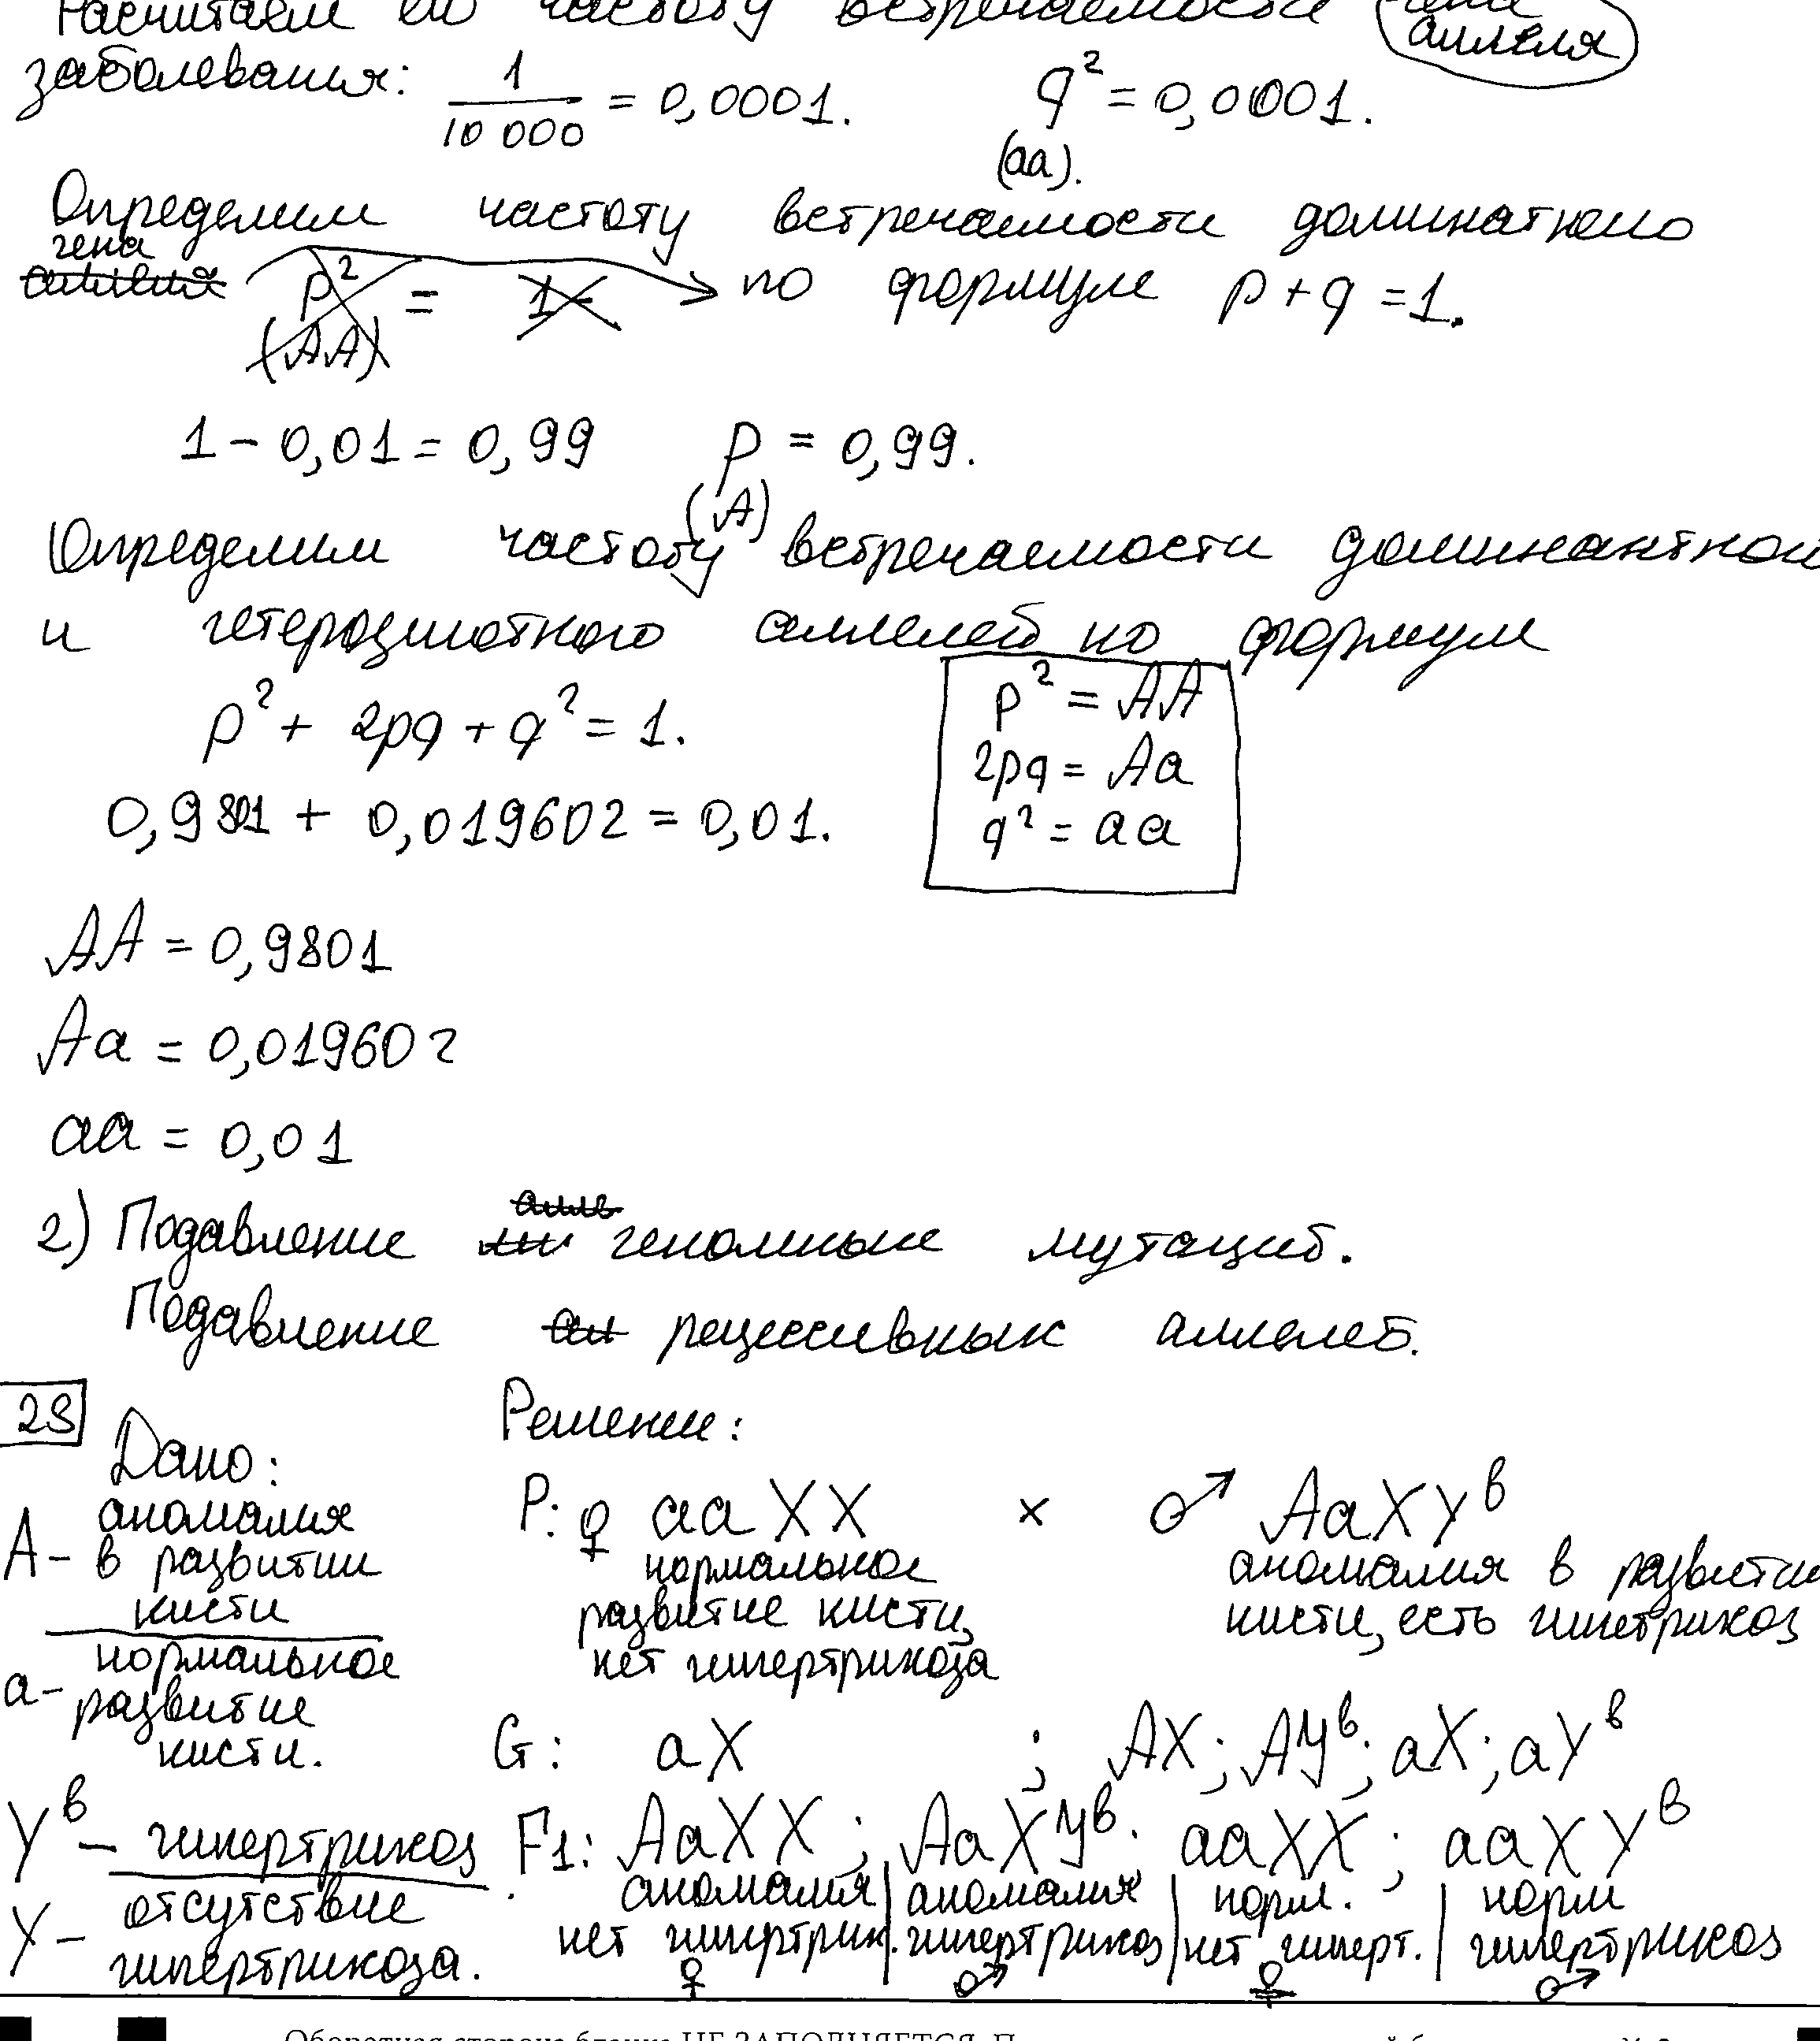 Расчитаем ей частоту встречаемости гена
аллеля
заболевания: 1/10 000 = 0,0001. q² = 0,0001.
(аа).
Определим частоту встречаемости доминатного
гена
аллеля p² = 1- по формуле p + q = 1.
(АА)
1 - 0,01 = 0,99 p = 0,99.
(А)
Определим частоту встречаемости доминантной
и гетерозиготного аллелей по формуле
p² + 2pq + q² = 1.
p² = АА
2pq = Аа
q² = аа
0,9801 + 0,019602 = 0,01.
АА = 0,9801
Аа = 0,019602
аа = 0,01
2) Подавление геномные мутаций.
Подавление рецессивных аллелей.
28
Дано:
Решение:
А - аномалия
в развитии
кисти
а - нормальное
развитие
кисти.
Yᵇ - гипертрихоз
X - отсутствие
гипертрихоза.
P: ♀ aaXX × ♂ AaXYᵇ
нормальное
развитие кисти,
нет гипертрихоза
аномалия в развитии
кисти, есть гипетрихоз
G: aX ; AX; AYᵇ; aX; aYᵇ
F1: AaXX ; AaXYᵇ; aaXX ; aaXYᵇ
аномалия | аномалия | норм. | норм
нет гипертрих. | гипертрихоз | нет гиперт. | гипертрихоз
♀ ♂ ♀ ♂
Оборотная сторона бланка НЕ ЗАПОЛНЯЕТСЯ.